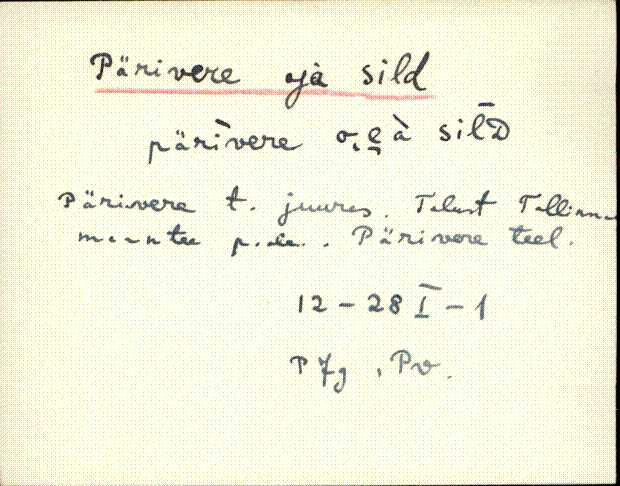 Pärivere oja sild
pärìvere o̬e̬à sil̄D
Pärivere t. juures. Talust Tallinna
maantee p. . Pärivere teel.
12 – 28 I – 1
P Jg, Pv.